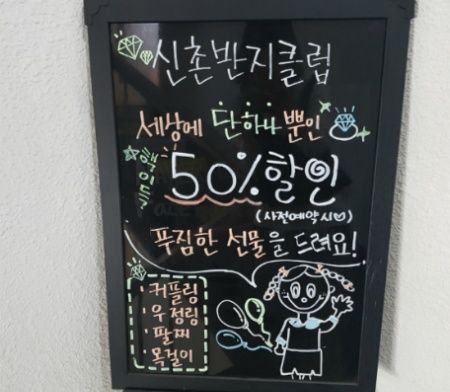 신촌반지클럽
세상에 단하나 뿐인
핵이득
50% 할인
(사전예약 시♡)
푸짐한 선물을 드려요!
· 커플링
· 우정링
· 팔찌
· 목걸이